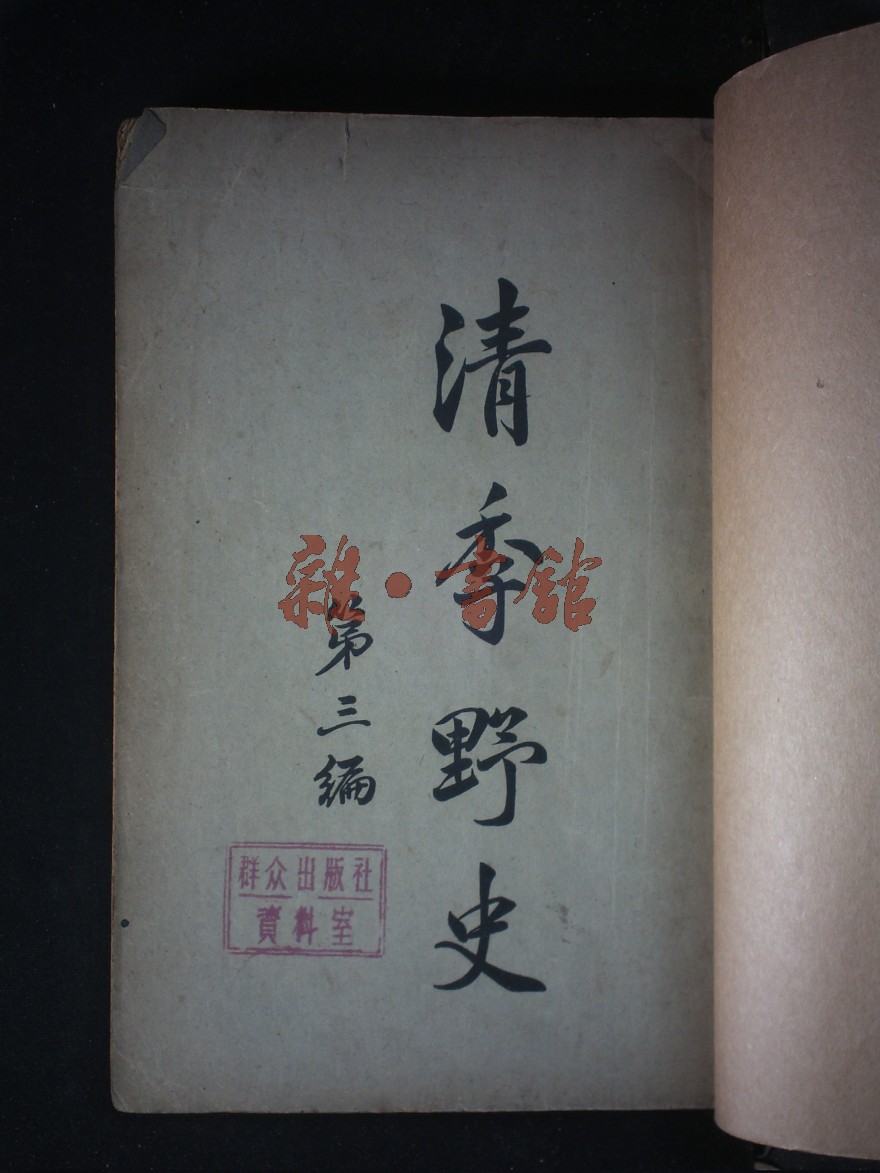 清季野史
第三編
雜·書館
群众出版社
資料室